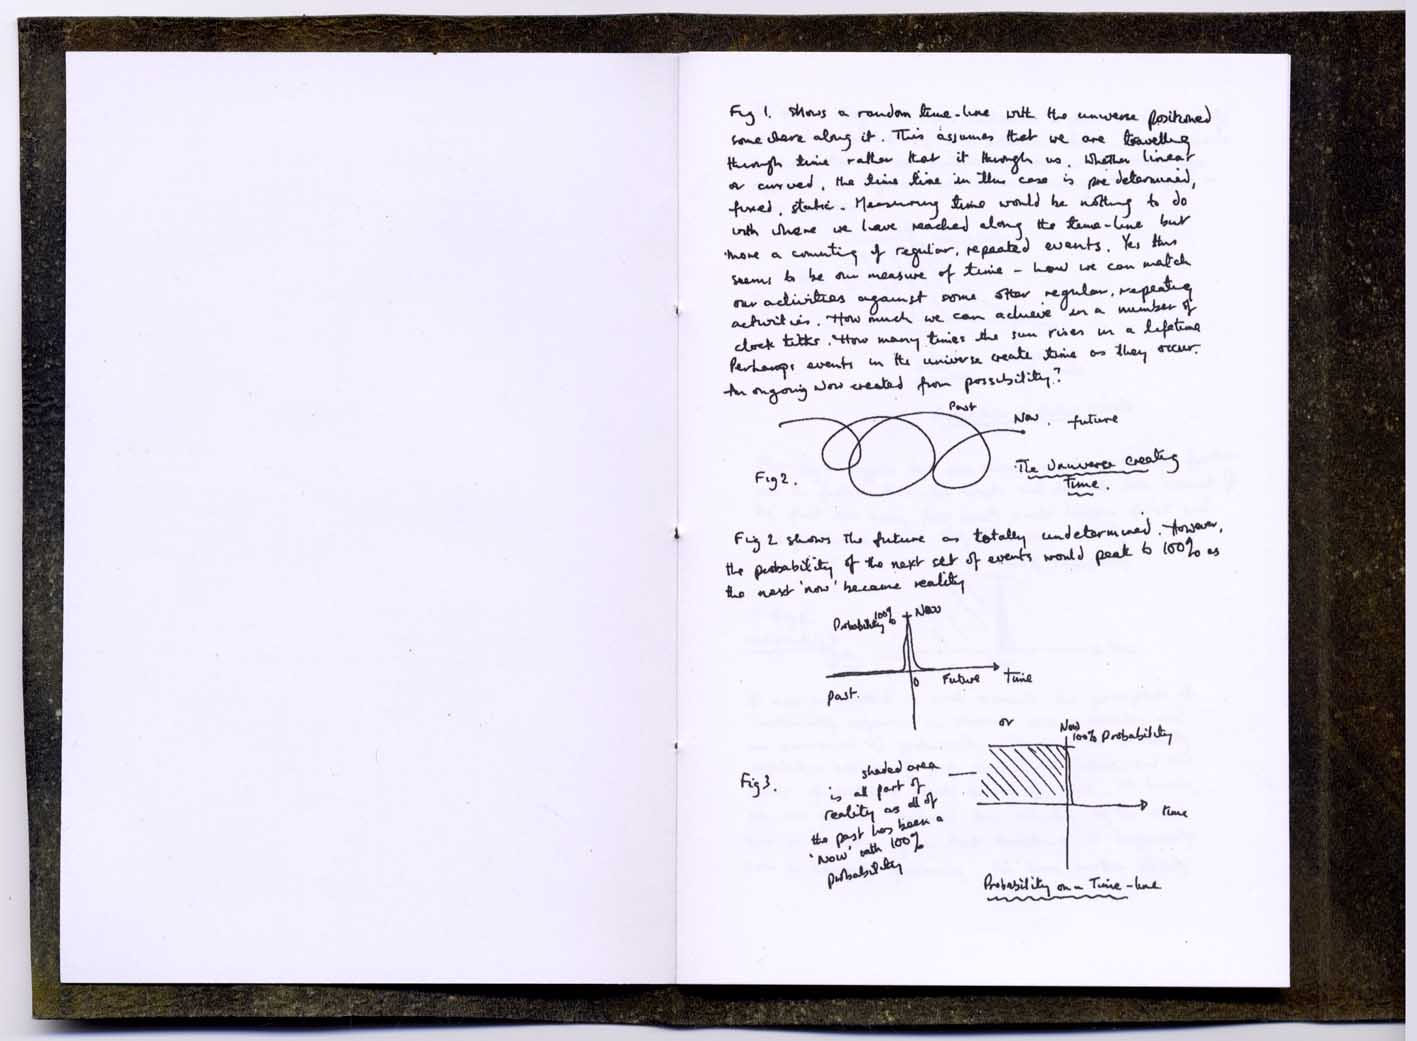 Fig 1. shows a random time-line with the universe positioned
somewhere along it. This assumes that we are travelling
through time rather that it through us. Whether linear
or curved, the time line in this case is pre determined,
fixed, static. Measuring time would be nothing to do
with where we have reached along the time-line but
more a counting of regular, repeated events. Yes this
seems to be our measure of time - how we can match
our activities against some other regular, repeating
activities. How much we can achieve in a number of
clock ticks. How many times the sun rises in a lifetime
Perhaps events in the universe create time as they occur.
An ongoing Now created from possibility?
Past
Now. future
Fig 2.
The Universe Creating
Time.
Fig 2 shows the future as totally undetermined. However,
the probability of the next set of events would peak to 100% as
the next 'now' became reality
Probability 100% Now
Past. 0 Future Time
or
Now
100% Probability
Fig 3.
shaded area
is all part of
reality as all of
the past has been a
'Now' with 100%
probability
time
Probability on a Time-line